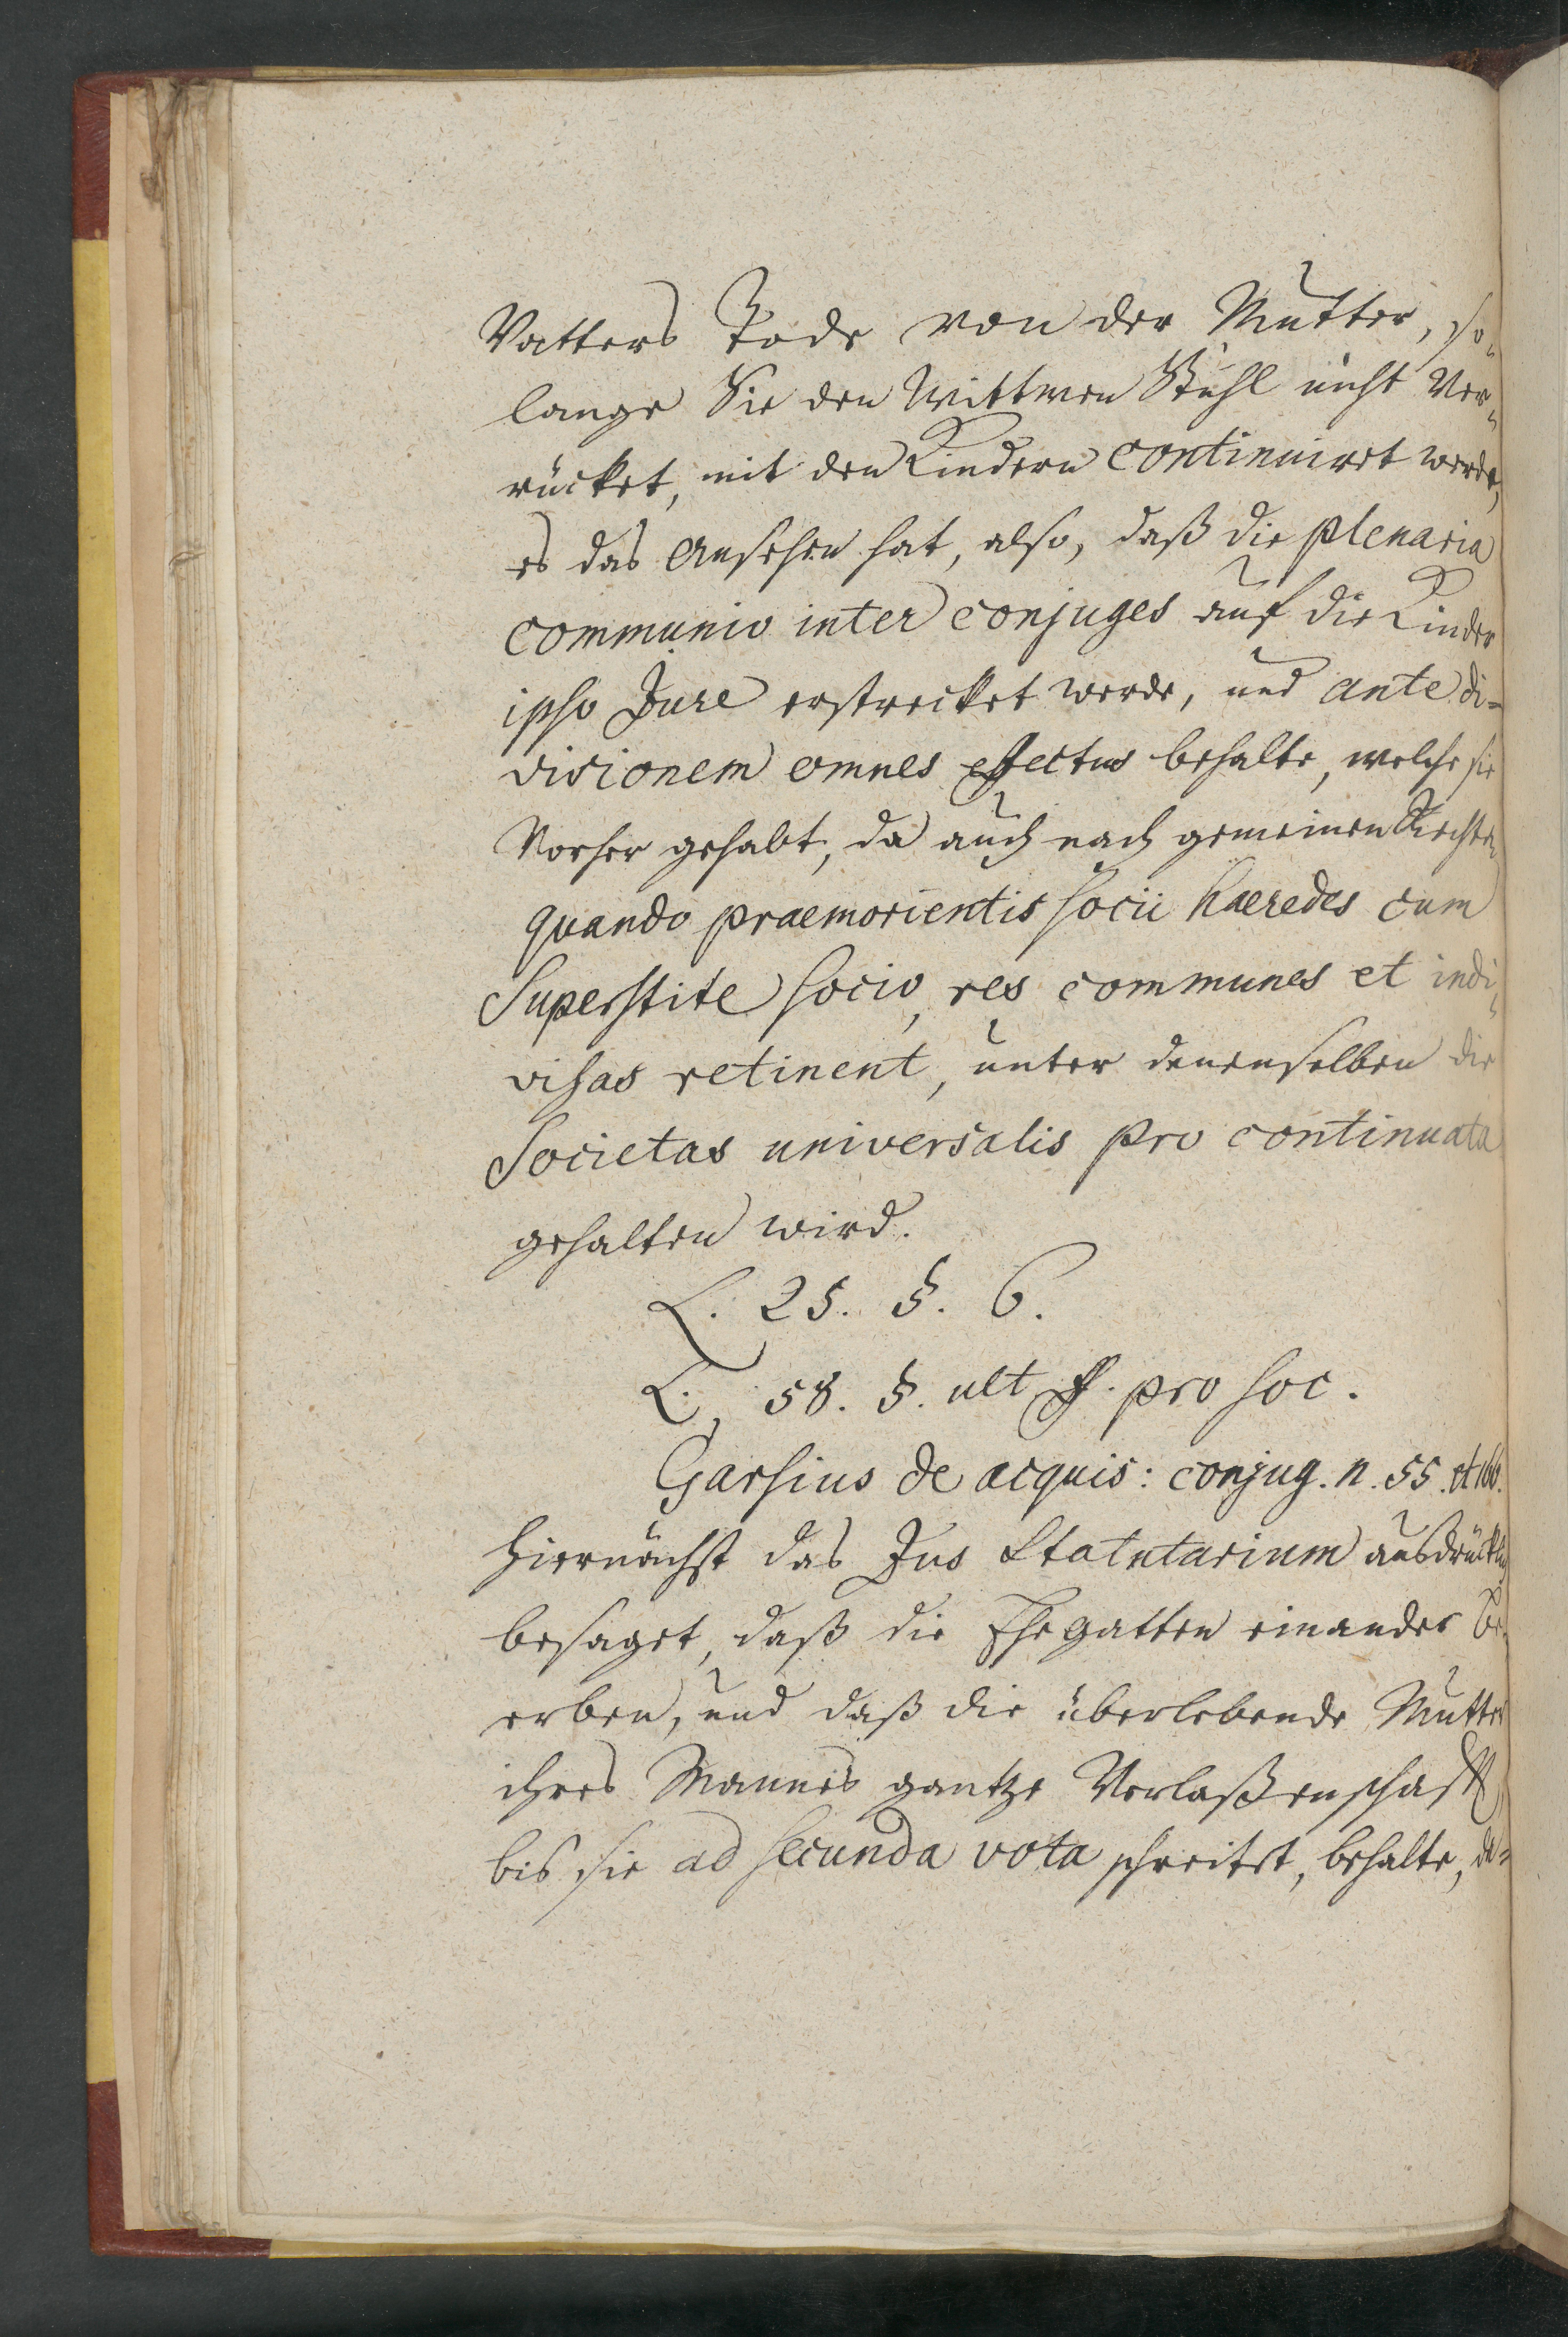 Vatters Tode von der Mutter, so-
lange Sie den Wittwen Stuhl nicht Ver-
rücket, mit den Kindern continuiret werde,
es das Ansehen hat, also, daß die plenaria
communio inter conjuges auf die Kinder
ipso Jure erstrecket werde, und ante di-
visionem omnes effectus behalte, welche sie
Vorher gehabt, da auch nach gemeinen Rechten
quando praemorientis socii haeredes cum
Superstite socio, res communes et indi-
visas retinent, unter denenselben die
Societas universalis pro continuata
gehalten wird.
L. 25. §. 6.
L. 58. §. ult ff. pro soc.
Garsius de acquis: conjug. n. 55. et 166.
Hiernächst das Jus Statutarium ausdrücklich
besaget, daß die Ehegatten einander be-
erben, und daß die überlebende Mutter
ihres Mannes gantze Verlaßenschafft
bis sie ad secunda vota schreitet, behalte, de-